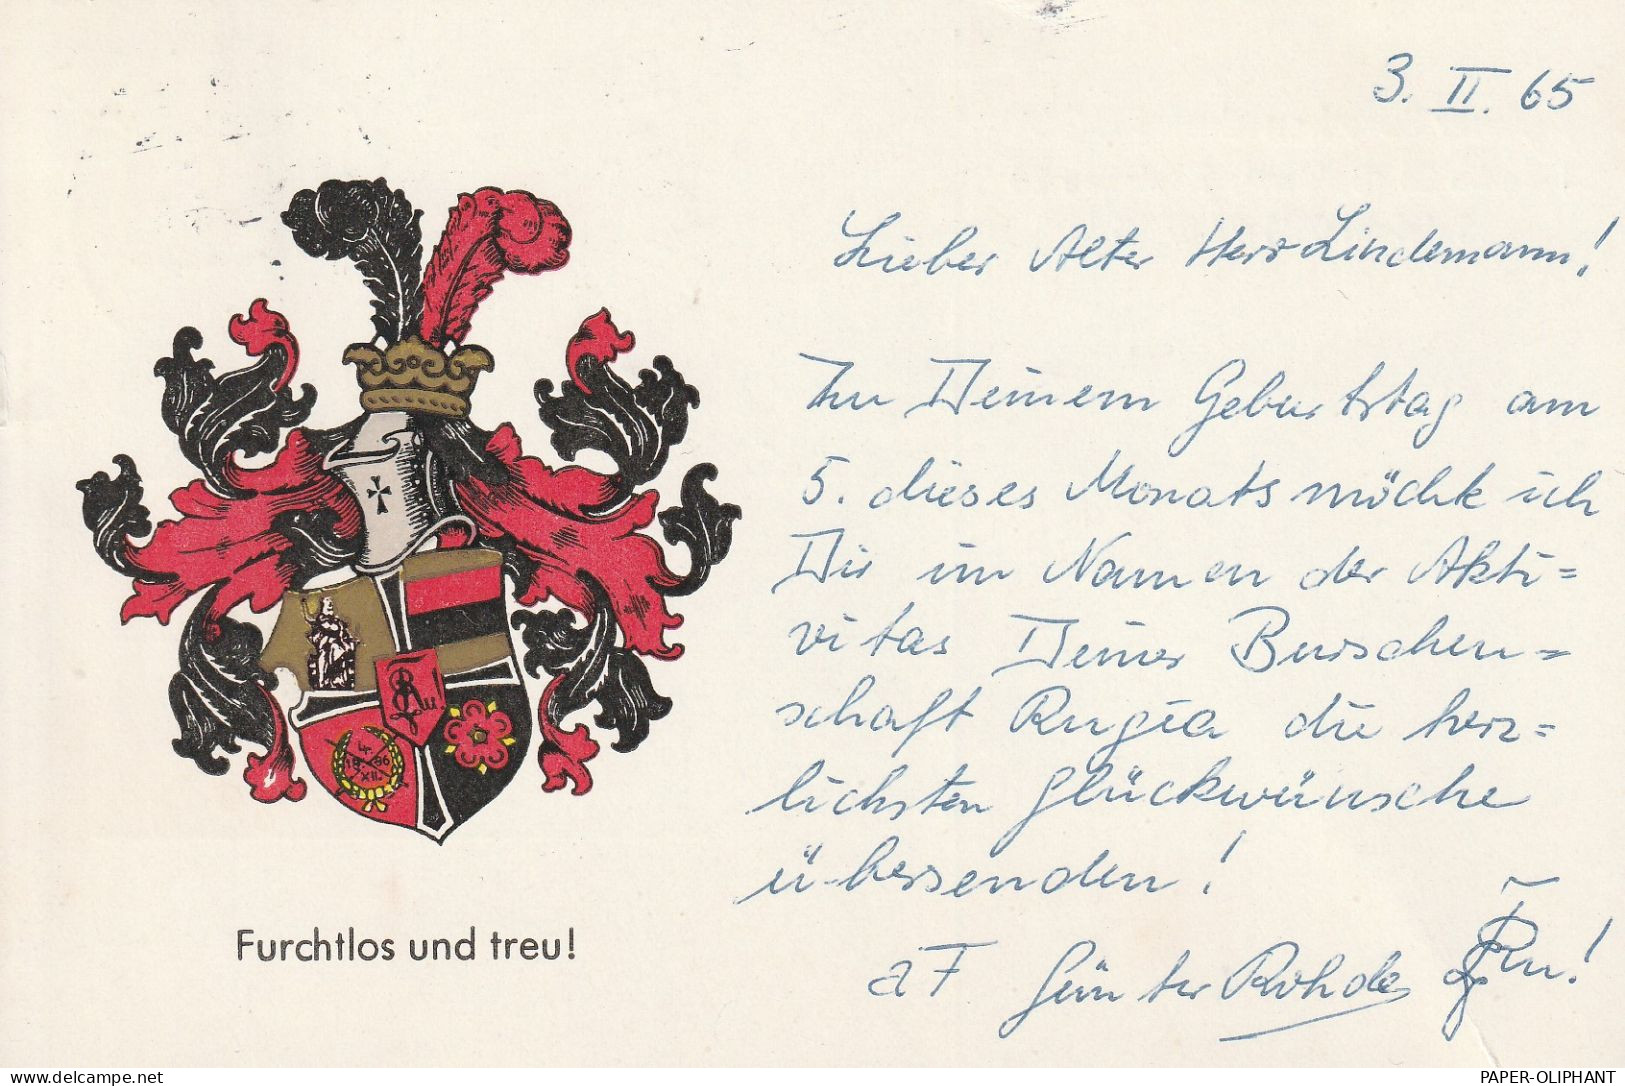 3. II. 65
Lieber Alter Herr Lindemann!
Zu Deinem Geburtstag am
5. dieses Monats möchte ich
Dir im Namen der Akti=
vitas Deiner Burschen=
schaft Rugia die herz=
lichsten Glückwünsche
übersenden!
aF Günter Rohde
4.
18 86
XII.
Furchtlos und treu!
www.delcampe.net
PAPER-OLIPHANT